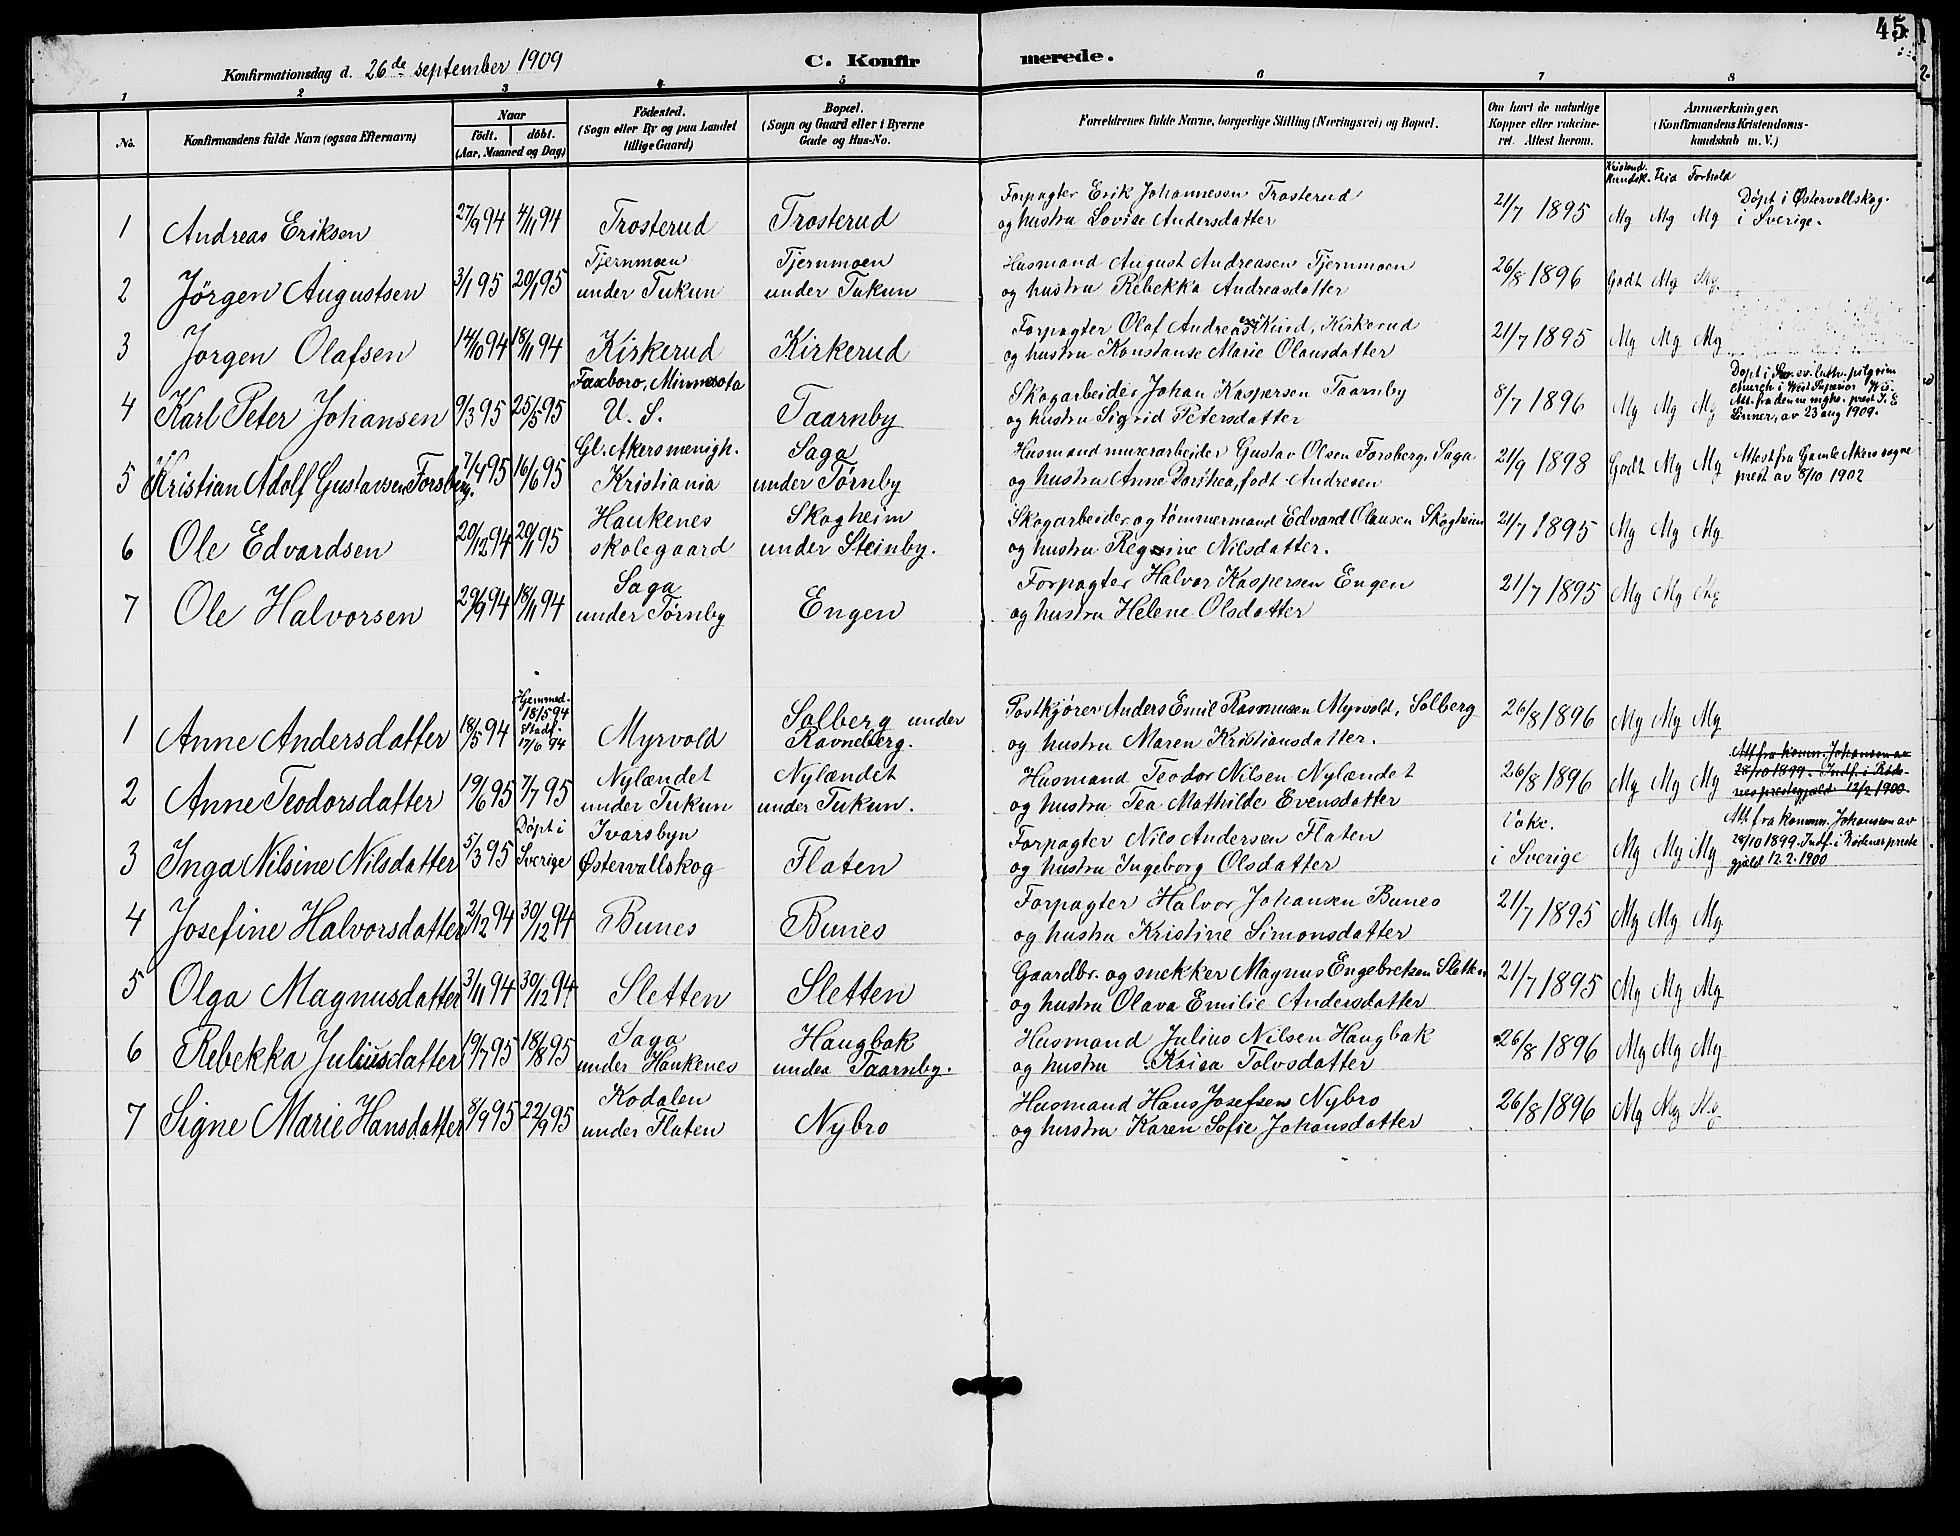 45
Konfirmationsdag d. 26de september 1909
C. Konfirmerede.
1 2 3 4 5 6 7 8
No.
Konfirmandens fulde Navn (ogsaa Efternavn)
Naar
födt. döbt.
(Aar, Maaned og Dag)
Födested.
(Sogn eller By og paa Landet
tillige Gaard)
Bopæl.
(Sogn og Gaard eller i Byerne
Gade og Hus-No.
Forældrenes fulde Navne, borgerlige Stilling (Næringsvei) og Bopæl.
Om havt de naturlige
Kopper eller vakcine-
ret. Attest herom.
Anmærkninger,
(Konfirmandens Kristendoms-
kundskab m. V.)
Kristend.
kundsk. Flid Forhold
1 Andreas Eriksen 27/9 94 4/11 94 Trosterud Trosterud
Forpagter Erik Johannesen Trosterud
og hustru Lovise Andersdatter
21/7 1895 Mg Mg Mg
Döpt i Østervallskog
i Sverige.
2 Jörgen Augustsen 3/1 95 20/1 95
Tjernmoen
under Tukun
Tjernmoen
under Tukun
Husmand August Andreasen Tjernmoen
og hustru Rebekka Andreasdatter
26/8 1896 Godt Mg Mg
3 Jorgen Olafsen 14/10 94 18/11 94 Kirkerud Kirkerud
Forpagter Olof Andreas Kind, Kirkerud
og hustru Konstanse Marie Olausdatter
21/7 1895 Mg Mg Mg
4 Karl Peter Johansen 9/3 95 25/5 95
Faxboro, Minnesota
U. S.
Taarnby
Skogarbeider Johan Kaspersen Taarnby
og hustru Sigrid Petersdatter
8/7 1896 Mg Mg Mg
Döpt i ev. luth. pilgrim
church i West Superior Wis.
Att. fra denne mghs. prest
av 23 aug 1909.
5 Kristian Adolf Gustavsen Forsberg. 7/4 95 16/6 95
Gl. Akers menigh.
Kristiania
Saga
under Tørnby
Husmand murerarbeider Gustav Olsen Forsberg, Saga
og hustru Anne Dorthea, født Andresen
21/9 1898 Godt Mg Mg
Attest fra Gamle Akers sogne
prest av 8/10 1902
6 Ole Edvardsen 20/12 94 20/1 95
Haukenes
skolegaard
Skogheim
under Steinby.
Skogarbeider og tømmermand Edvard Olausen Skogheim
og hustru Regine Nilsdatter.
21/7 1895 Mg Mg Mg
7 Ole Halvorsen 29/9 94 18/11 94
Saga
under Tørnby
Engen
Forpagter Halvor Kaspersen Engen
og hustru Helene Olsdatter
21/7 1895 Mg Mg Mg
1 Anne Andersdatter 18/5 94
Hjemmed.
18/5 94
Stadf.
17/6 94
Myrvold
Solberg under
Ravneberg.
Postkjører Anders Emil Rasmusen Myrvold, Solberg
og hustru Maren Kristiansdatter.
26/8 1896 Mg Mg Mg
2 Anne Teodorsdatter 19/6 95 7/7 95
Nylændet
under Tukun
Nylændet
under Tukun.
Husmand Teodor Nilsen Nylændet
og hustru Tea Mathilde Evensdatter
26/8 1896 Mg Mg Mg
Att fra komm. Johansen av
28/10 1899. Indf. i Røde-
nes prestegjæld 12/2 1900.
3 Inga Nilsine Nilsdatter 5/3 95
Döpt i
Sverige
Ivarsbyn
Østervallskog
Flaten
Forpagter Nils Andersen Flaten
og hustru Ingeborg Olsdatter
Vakc.
i Sverige
Mg Mg Mg
Att fra komm. Johansen av
28/10 1899. Indf. i Rødenes preste
gjæld 12.2.1900
4 Josefine Halvorsdatter 2/12 94 30/12 94 Bunes Bunes
Forpagter Halvor Johansen Bunes
og hustru Kristine Simonsdatter
21/7 1895 Mg Mg Mg
5 Olga Magnusdatter 3/11 94 30/12 94 Sletten Sletten
Gaardbr. og snekker Magnus Engebretsen Sletten
og hustru Olava Emilie Andersdatter
21/7 1895 Mg Mg Mg
6 Rebekka Juliusdatter 19/7 95 18/8 95
Saga
under Haukenes
Haugbak
under Taarnby.
Husmand Julius Nilsen Haugbak
og hustru Krisa Tolvsdatter
26/8 1896 Mg Mg Mg
7 Signe Marie Hansdatter 8/9 95 22/9 95
Kodalen
under Flaten
Nybro
Husmand Hans Josefsen Nybro
og hustru Karen Sofie Johansdatter
26/8 1896 Mg Mg Mg